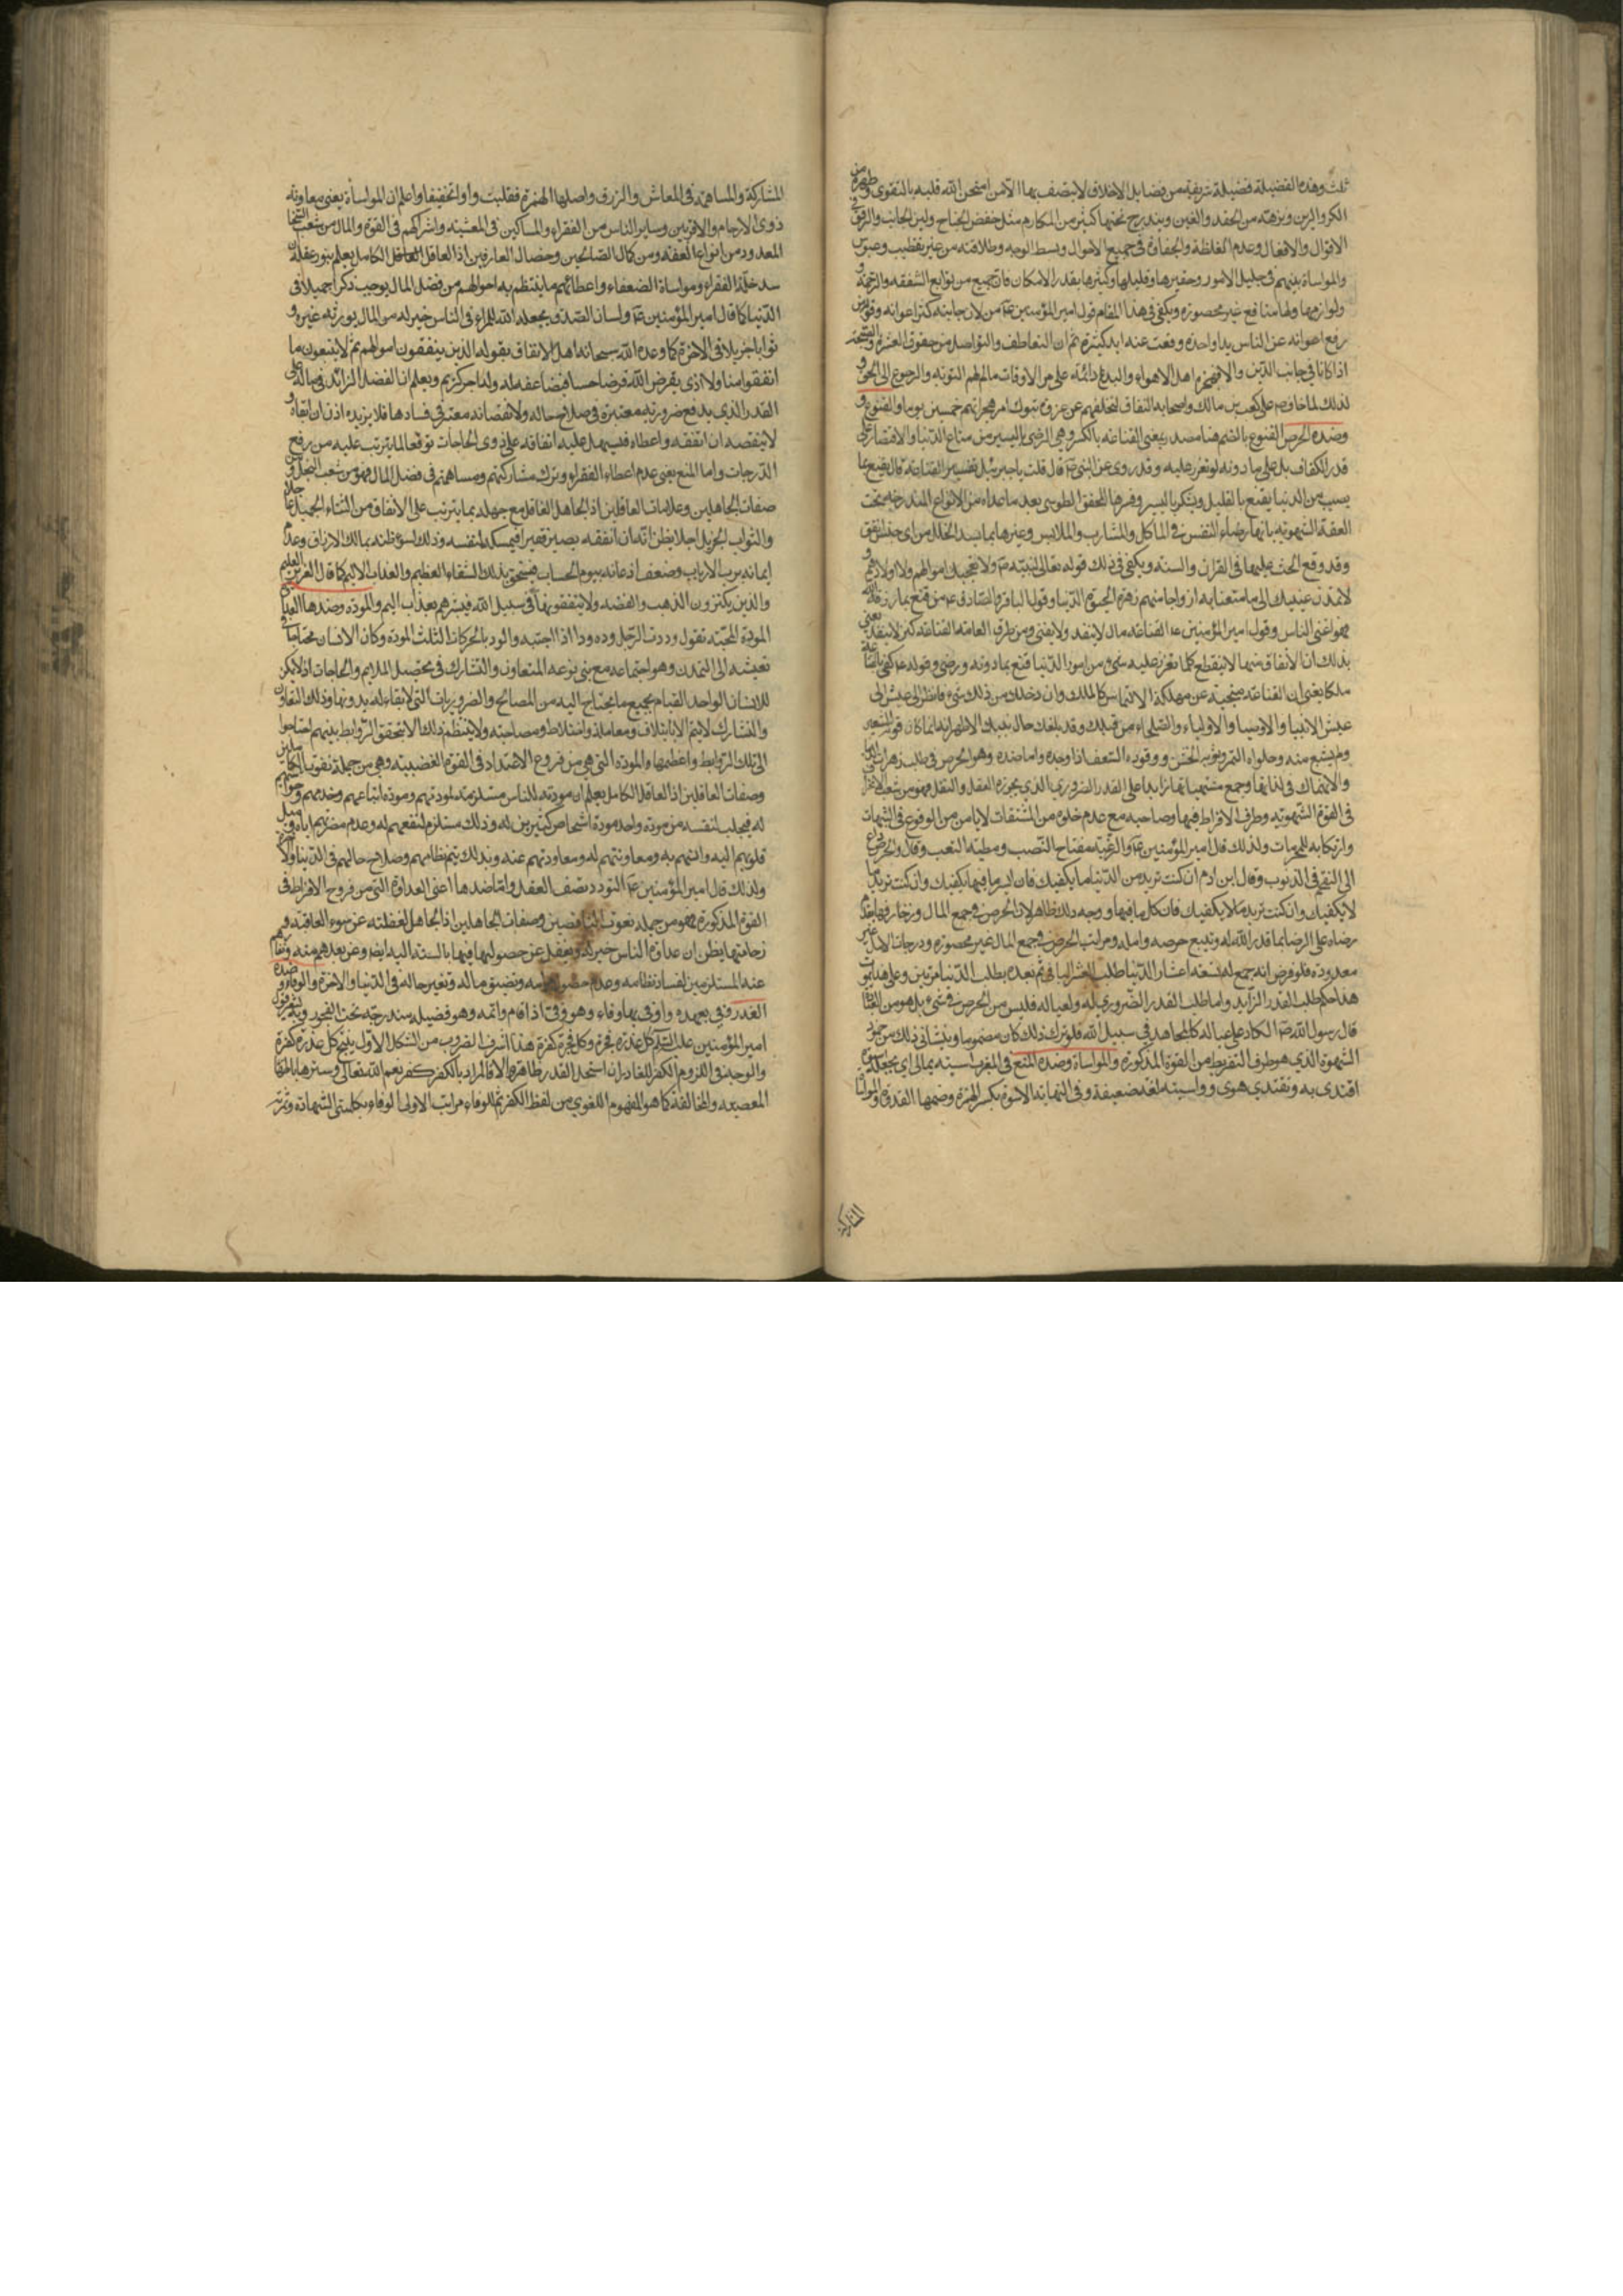 ثلث وهذه الفضيلة فضيلة شريفة من فضايل الاخلاق لا يتصف بها الا من امتحن الله قلبه بالتقوى وطهره من
الكر والرين ونزهه من الحقد والغين ويندرج تحتها كثير من المكارم مثل خفض الجناح ولين الجانب والرفق في
الاقوال والافعال وعدم الغلظة والجفاوة في جميع الاحوال وبسط الوجه وطلاقته من غير تقطيب وعبوس
والمواساة بينهم في جليل الامور وحقيرها وقليلها وكثيرها بقدر الامكان فان جميع من توابع الشفقه والرحمة و
ولوازمها ولها منافع غير محصورة ويكفي في هذا المقام قول امير المؤمنين ع من لان جانبه كثر اعوانه وقوله من
رفع اعوانه عن الناس يدا واحدة رفعت عنه ايد كثيرة ثم ان التعاطف والتواصل من حقوق العشرة والصحبة
اذا كانا في جانب الدين والا فهجرة اهل الاهواء والبدع دائمة على مر الاوقات مالم يظهر التوبة والرجوع الى الحق و
لذلك لما خاف ص على كعب بن مالك واصحابه النفاق لتخلفهم عن غزوة تبوك امر بهجرانهم خمسين يوما والقنوع و
وضده الحرص القنوع بالضم هنا مصدر بمعنى القناعة بالكسر وهي الرضى باليسير من متاع الدنيا والاقتصار على
قدر الكفاف بل على ما دونه لو تعزر عليه وقد روي عن النبي ص قال قلت يا جبرئيل تفسير القناعة قال يقنع بما
يصيب من الدنيا يقنع بالقليل ويشكر باليسير وفسرها المحقق الطوسي بعد ما عداه من الانواع المندرجة تحت
العفة الشهوية بانها رضاء النفس في المآكل والمشارب والملابس وغيرها بما يسد الخلل من اي جنس اتفق
وقد وقع الحث عليها في القران والسنة ويكفي في ذلك قوله تعالى لنبيه ص ولا تعجبك اموالهم ولا اولادهم و
لا تمدن عينيك الى ما متعنا به ازواجا منهم زهرة الحيوة الدنيا وقول الباقر او الصادق ع من قنع بما رزقه الله
فهو اغنى الناس وقول امير المؤمنين ع القناعة مال لا ينفد ولا يفنى ومن طرق العامة القناعة كنز لا ينفد يعني
بذلك ان الانفاق منها لا ينقطع كلما تعزر عليه شيء من امور الدنيا قنع بما دونه ورضي وقوله ع كفى بالقناعة
ملكا يعني ان القناعة منجية عن مهلكة الالتماس كالملك وان دخلك من ذلك شيء فانظر الى عيش الى
عيش الانبيا والاوصيا والاولياء والصلحاء من قبلك وقد بلغك حال نبينا الاطهر انه انما كان قوته الشعير
ولم يشبع منه وحلواه التمر وثوبه الخشن ووقوده السعف اذا وجده واما ضده وهو الحرص في طلب زهرات الدنيا
والانهماك في لذاتها وجمع مشتهياتها زايدا على القدر الضروري الذي يجوزه العقل والنقل فهو من شعب الانحراف
في القوة الشهوية وطرف الافراط فيها وصاحبه مع عدم خلوه من المشقات لا يامن من الوقوع في الشبهات
وارتكابه للمحرمات ولذلك قال امير المؤمنين ع والرغبة مفتاح النصب ومطية التعب وقال والحرص داع
الى التقحم في الذنوب وقال ابن ادم ان كنت تريد من الدنيا ما يكفيك فان ايسر ما فيها يكفيك وان كنت تريد ما
لا يكفيك وان كنت تريد ما لا يكفيك فان كل ما فيها ووجه ذلك ظاهر لان الحرص في جمع المال وزخارفها بقدر
رضاه على الرضا بما قدر الله له ويتبع حرصه وامله ومراتب الحرص في جمع المال غير محصورة ودرجات الامل غير
معدودة فلو فرض انه جمع له تسعة اعشار الدنيا طلب العشر الباقي ثم بعده يطلب الدنيا مرتين وعلى هذا يموت
هذا حكم طلب القدر الزايد واما طلب القدر الضروري له ولعياله فليس من الحرص في شيء بل هو من العبادة
قال رسول الله ص الكاد على عياله كالمجاهد في سبيل الله فلو ترك ذلك كان مضموما وينشأ ذلك من خمود
الشهوة الذي هو طرف التفريط من القوة المذكورة والمواساة وضده المنع في المغرب اسيته بمالي اي جعلته اسوة
اقتدي به ويقتدي هو بي وواسيته لغة ضعيفة وفي النهاية الاسوة بكسر الهمزة وضمها القدوة والمواساة
المشاركة
المشاركة والمساهمة في المعاش والرزق واصلها الهمزة فقلبت واوا تخفيفا واعلم ان المواساة يعني معاونة
ذوي الارحام والاقربين وساير الناس من الفقراء والمساكين في المعيشة واشراكهم في القوة والمال من شعب السخا
المعدود من انواع العفة ومن كمال الصالحين وخصال العارفين اذ العاقل العاقل الكامل يعلم بنور عقله ان
سد خلة الفقراء ومواساة الضعفاء واعطائهم ما ينتظم به احوالهم من فضل المال يوجب ذكرا جميلا في
الدنيا كما قال امير المؤمنين ع ولسان الصدق يجعله الله للمرء في الناس خير له من المال يورثه غيره و
ثوابا جزيلا في الاخرة كما وعده الله سبحانه اهل الانفاق بقوله الذين ينفقون اموالهم ثم لا يتبعون ما
انفقوا منا ولا اذى يقرض الله قرضا حسنا فيضاعفه له وله اجر كريم ويعلم ان الفضل الزائد في ماله على
القدر الذي يدفع ضرورته معتبرة في صلاح حاله ولا نقصانه معتبر في فسادها فلا يزيده اذن ان ابقاه و
لا ينقصه ان انفقه واعطاه فيسهل عليه انفاقه على ذوي الحاجات توقعا لما يترتب عليه من رفع
الدرجات واما المنع يعني عدم اعطاء الفقراء وترك مشاركتهم ومساهمتهم في فضل المال فهو من شعب البخل ومن
صفات الجاهلين وعلامات الغافلين اذ الجاهل الغافل مع جهله بما يترتب على الانفاق من الثناء الجميل عاجلا
والثواب الجزيل اجلا يظن انه ان انفقه يصير فقيرا فيمسكه لنفسه وذلك لسوء ظنه بمالك الارزاق وعدم
ايمانه برب الارباب وضعف اذعانه بيوم الحساب فيستحق بذلك الشقاء العظيم والعذاب الاليم كما قال العزيز العليم
والذين يكنزون الذهب والفضة ولا ينفقونها في سبيل الله فبشرهم بعذاب اليم والمودة وضدها العداوة
المودة المحبة تقول وددت الرجل وده ودا اذا احببته والود بالحركات الثلث المودة وكان الانسان محتاجا في
تعيشه الى التمدن وهو اجتماعه مع بني نوعه للمتعاون والتشارك في تحصيل الملايم والحاجات اذ لا يمكن
للانسان الواحد القيام بجميع ما يحتاج اليه من المصالح والضروريات التي لا بقاء له بدونها وذلك التعاون
والتشارك لا يتم الا بائتلاف ومعاملة واختلاط ومصاحبة ولا ينتظم ذلك الا بتحقق الروابط بينهم احتاجوا
الى تلك الروابط واعظمها والمودة التي هي من فروع الاعتدال في القوة الغضبية وهي من جملة نعوت الكاملين
وصفات العاقلين اذ العاقل الكامل يعلم ان مودته للناس مستلزمة لمودتهم ومودة اتباعهم وخدمهم وحواشيهم
له فيجلب لنفسه من مودة واحد مودة اشخاص كثيرين له وذلك مستلزم لنفعهم له وعدم مضرتهم اياه وميل
قلوبهم اليه وانسهم به ومعاونتهم له ومعاودتهم عنه وبذلك يتم نظامهم وصلاح حالهم في الدنيا والاخرة
ولذلك قال امير المؤمنين ع التودد نصف العقل واما ضدها اعني العداوة التي من فروع الافراط في
القوة المذكورة فهو من جملة نعوت الناقصين وصفات الجاهلين اذ الجاهل لغفلته عن سوء العاقبة و
يظن ان عداوة الناس خير له ويغفل عن حصولها فيها بالنسبة اليه ايضا وعن بعدهم منه ونفارهم
عنه المستلزمين لفساد نظامه وعدم وتضييق ماله وتغير حاله في الدنيا والاخرة والوفاء وضده
الغدر وفي بعهده واوفى بها وفاء وهو وفي اذا قام واتمه وهو فضيلة مندرجة تحت
امير المؤمنين عليه السلام كل غدرة فجرة وكل فجرة كفرة هذا اشرف الضروب من الشكل الاول ينتج كل غدرة كفرة
والوجه في اللزوم الكفر للغادر ان استحل الغدر ظاهر والا فالمراد بالكفر كفر نعم الله تعالى وسترها
المعصية والمخالفة كما هو المفهوم اللغوي من لفظ الكفر ثم للوفاء مراتب الاولى الوفاء بكلمتي الشهادة